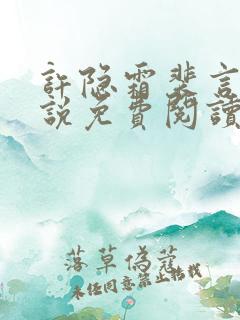 許隐霜裴言
説免費閱讀
落草偽蔻
未經同意禁止轉載